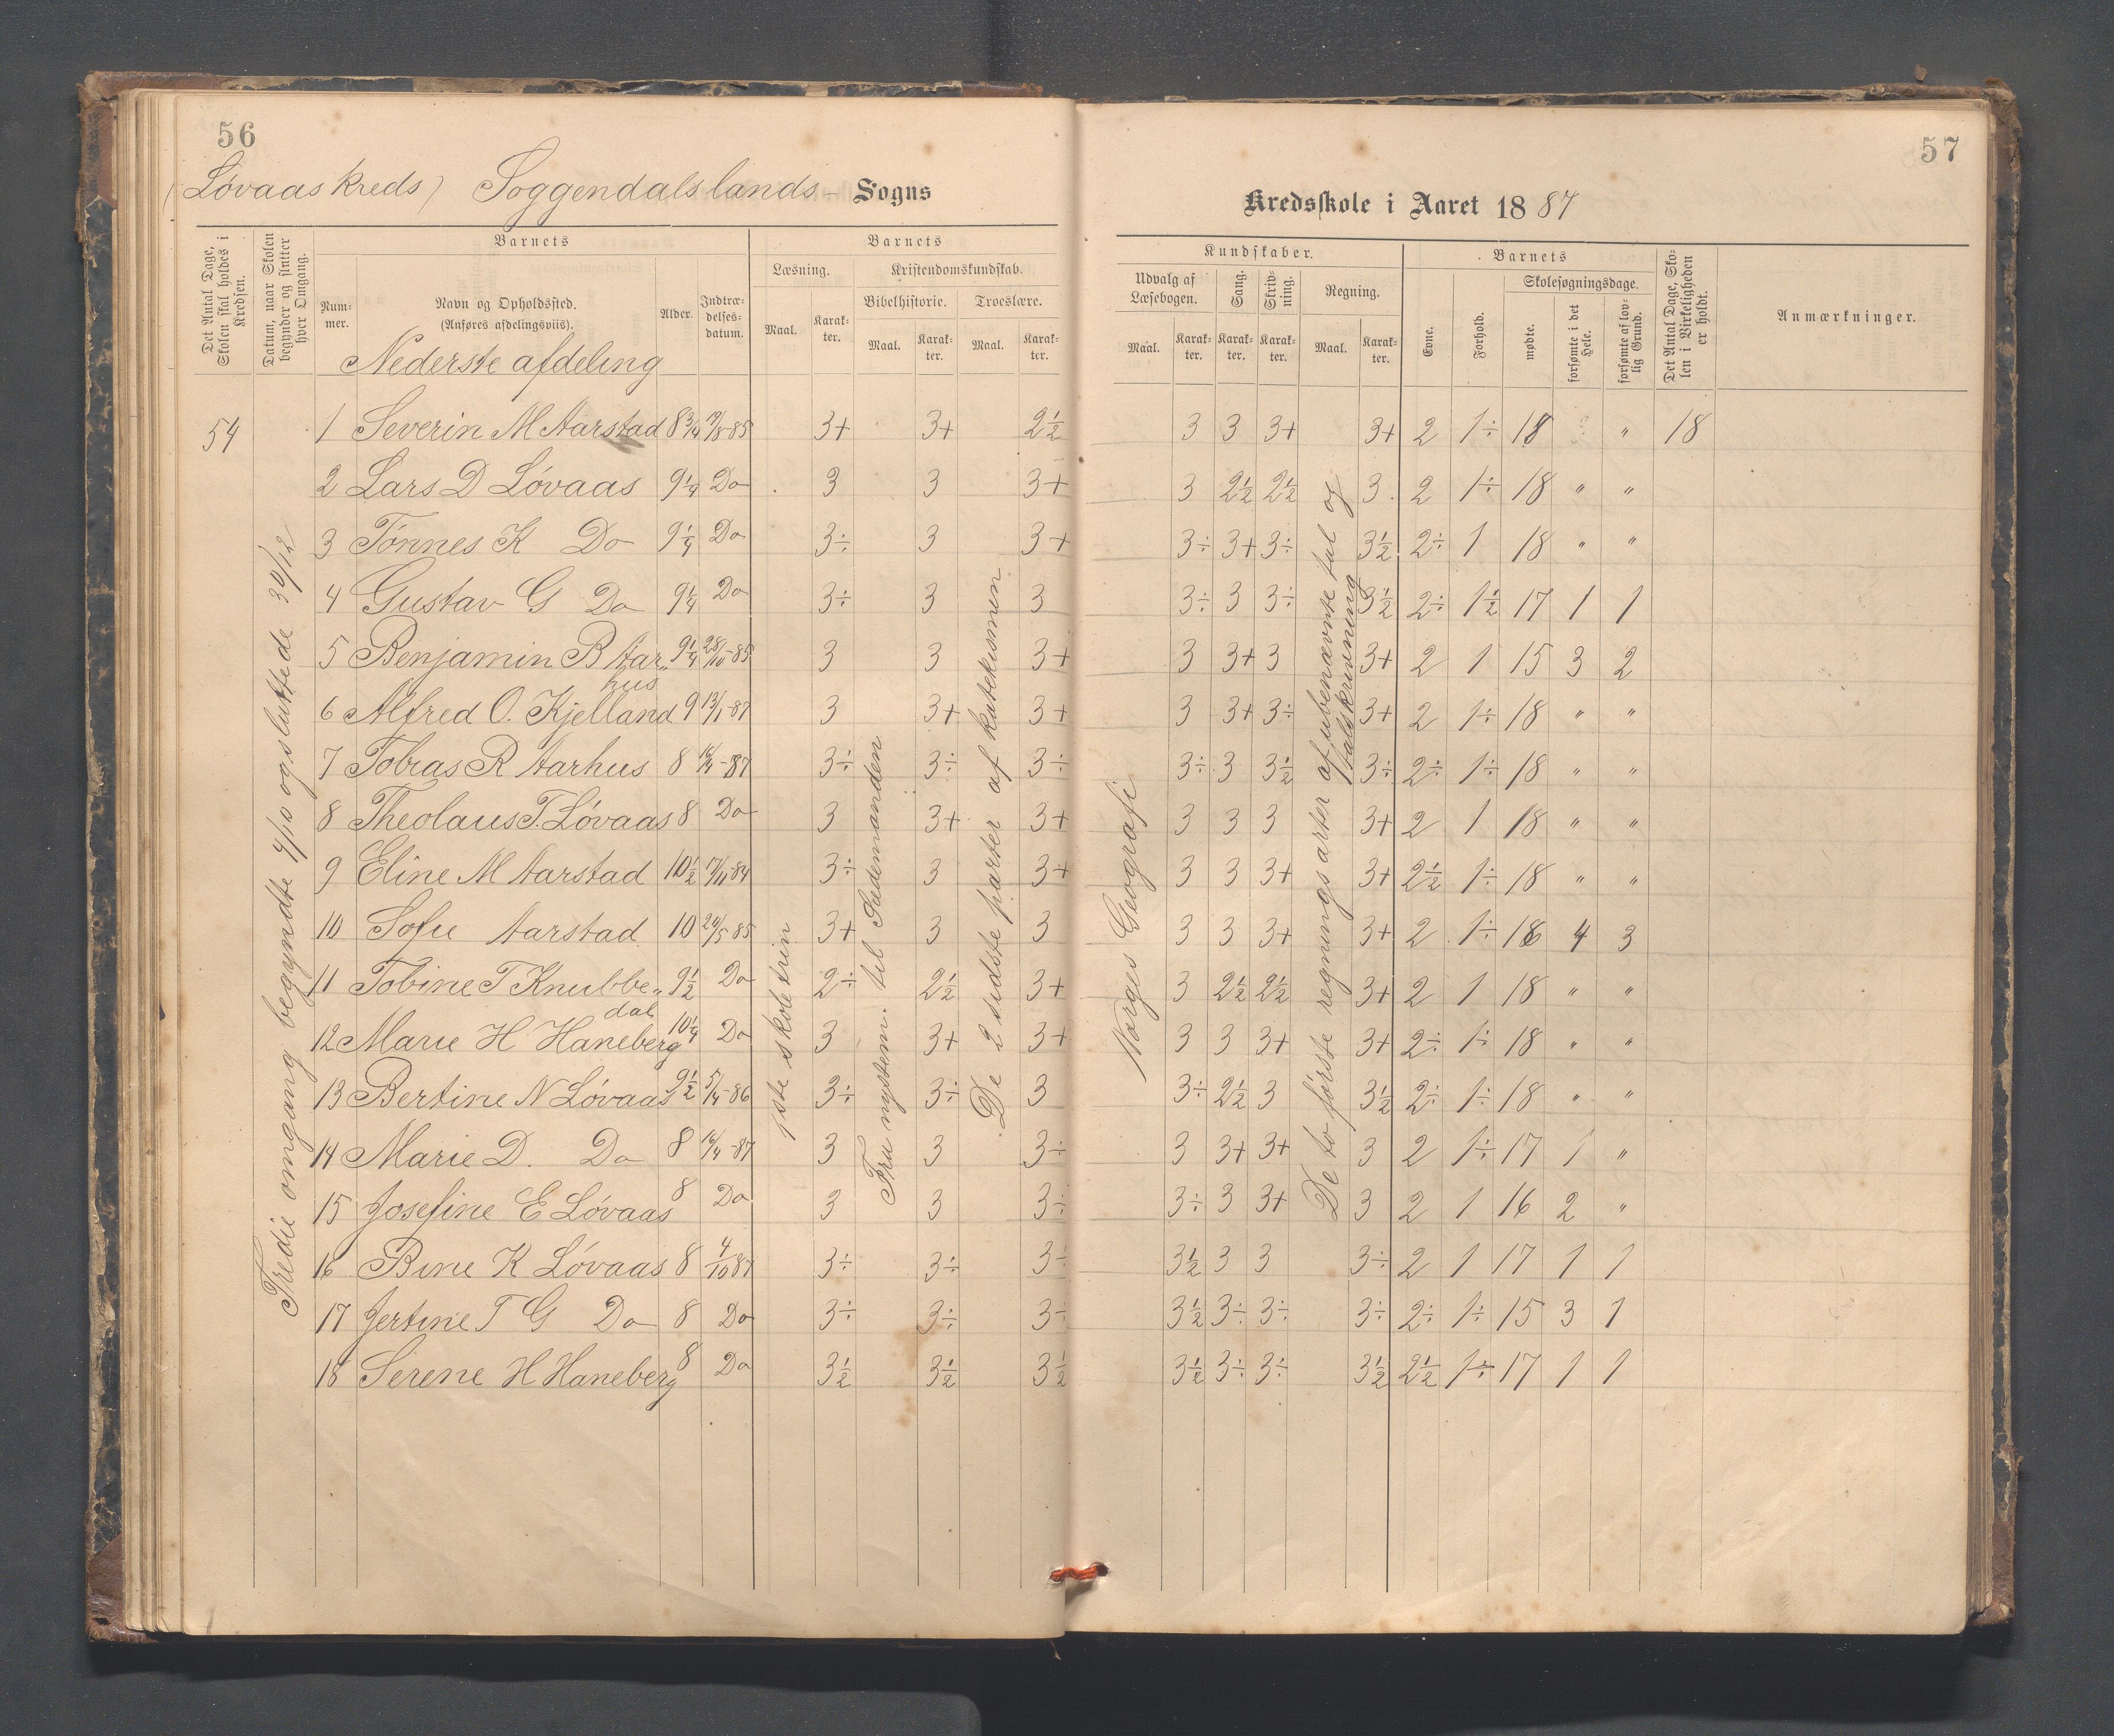 56
(Løvaas kreds) Soggendalslands- Sogns
Det Antal Dage, Skolen skal holdes i Kredsen.
Datum, naar Skolen begynder og slutter hver Omgang.
Barnets
Nummer.
Navn og Opholdssted. (Anføres afdelingsviis).
Alder.
Indtrædelsesdatum.
Barnets
Læsning.
Kristendomskundskab.
Bibelhistorie. Troeslære.
Maal. Karakter. Maal. Karakter. Maal. Karakter.
Nederste afdeling
54
Tredie omgang begyndte 4/10 og sluttede 30/12
1 Severin M Aarstad 8 3/4 19/8-85 3+ 3+ 2½
2 Lars D Løvaas 9¼ Do 3 3 3+
3 Tønnes K Do 9¼ Do 3÷ 3 3+
4 Gustav G Do 9¼ Do 3÷ 3 3
5 Benjamin B Aar„hus 9¼ 28/10-85 3 3 3+
6 Alfred O. Kjelland 9 13/1-87 3 3+ 3+
7 Tobias R Aarhus 8 16/4-87 3÷ 3÷ 3÷
8 Theolaus T. Løvaas 8 Do 3 3+ 3+
9 Eline M Aarstad 10½ 17/11-84 3÷ 3 3+
10 Sofie Aarstad 10 20/5-85 3+ 3 3
11 Tobine T Knubbe„dal 9½ Do 2÷ 2½ 3+
12 Marie H Haneberg 10¼ Do 3 3+ 3+
13 Bertine N Løvaas 9½ 5/4-86 3÷ 3÷ 3
14 Marie D. Do 8 16/4-87 3 3 3÷
15 Josefine E Løvaas 8 Do 3 3 3÷
16 Bine K Løvaas 8 4/10 87 3÷ 3÷ 3÷
17 Jertine T G Do 8 Do 3÷ 3÷ 3÷
18 Serene H Haneberg 8 Do 3½ 3½ 3½
1ste skoletrin
Fra nystem. til Sædemanden
De 2 sidste parter af katekismen
57
Kredsskole i Aaret 1887
Kundskaber.
Udvalg af Læsebogen.
Sang.
Skrivning.
Regning.
Maal. Karakter. Karakter. Karakter. Maal. Karakter.
Barnets
Evne.
Forhold.
Skolesøgningsdage.
mødte.
forsømte i det Hele.
forsømte af lovlig Grund.
Det Antal Dage, Skolen i Virkeligheden er holdt.
Anmærkninger.
3 3 3+ 3+ 2 1÷ 18 „ 18
3 2½ 2½ 3 2 1÷ 18 „ „
3÷ 3+ 3÷ 3½ 2÷ 1 18 „ „
3÷ 3 3÷ 3½ 2÷ 1½ 17 1 1
3 3+ 3 3+ 2 1 15 3 2
3 3+ 3÷ 3+ 2 1÷ 18 „ „
3÷ 3 3½ 3÷ 2÷ 1÷ 18 „ „
3 3 3 3+ 2 1 18 „ „
3 3 3+ 3+ 2½ 1÷ 18 „ „
3 3 3+ 3+ 2 1÷ 16 4 3
3 2½ 2½ 3+ 2 1 18 „ „
3 3 3+ 3+ 2÷ 1÷ 18 „ „
3÷ 2½ 3 3½ 2÷ 1÷ 18 „ „
3 3+ 3+ 3 2 1÷ 17 1 „
3÷ 3 3+ 3 2 1 16 2 „
3½ 3 3 3÷ 2 1 17 1 1
3½ 3÷ 3÷ 3÷ 2÷ 1÷ 15 3 1
3½ 3÷ 3÷ 3½ 2½ 1÷ 17 1 1
Norges Geografi
De to første regningsarter af ubenævnte tal og
talskrivning